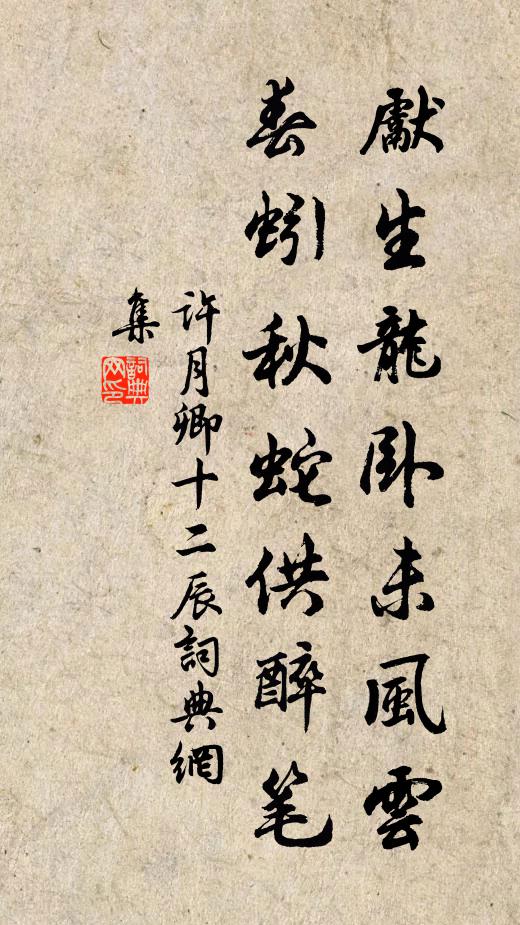 獻生龍臥未風雲
春蚓秋蛇供醉笔
許月卿十二辰詞典網
集
詞典網印